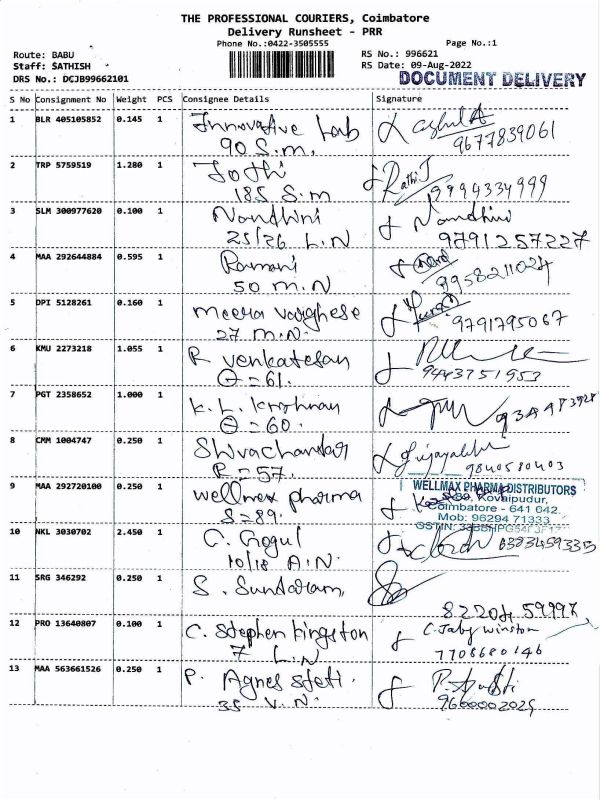 THE PROFESSIONAL COURIERS, Coimbatore
Delivery Runsheet - PRR
Phone No.:0422-3505555
Page No.:1
Route: BABU
RS No.: 996621
Staff: SATHISH
RS Date: 09-Aug-2022
DRS No.: DCJB99662101
DOCUMENT DELIVERY
S No Consignment No Weight PCS Consignee Details Signature
1 BLR 405105852 0.145 1 Innovative Lab
90 S.M. 9677839061
2 TRP 5759519 1.280 1 Jothi Rathi J
185 S.M 9994334999
3 SLM 300977620 0.100 1 Nandhini Nandhini
25/26 L.N 9791257227
4 MAA 292644884 0.595 1 Ramani
50 M.N 9958211024
5 DPI 5128261 0.160 1 Meera Varghese
27 M.N. 9791795067
6 KMU 2273218 1.055 1 R Venkatesan
θ=61. 9443751953
7 PGT 2358652 1.000 1 K.L. Krishnan
θ=60.
8 CMM 1004747 0.250 1 Shivachandar
R=57. 9840580403
9 MAA 292720100 0.250 1 Wellmex pharma WELLMAX PHARMA DISTRIBUTORS
S=89. S-89, Kovaipudur,
Coimbatore - 641 042.
Mob: 96294 71333
GSTIN:
10 NKL 3030702 2.450 1 C. Gogul
10/18 A.N.
11 SRG 346292 0.250 1 S. Sundaram,
82204 59997
12 PRO 13640807 0.100 1 C. Stephen kingston C. Jaby Winston
7 L.N 7708680146
13 MAA 563661526 0.250 1 P. Agnes
35 V.N. 9600002025